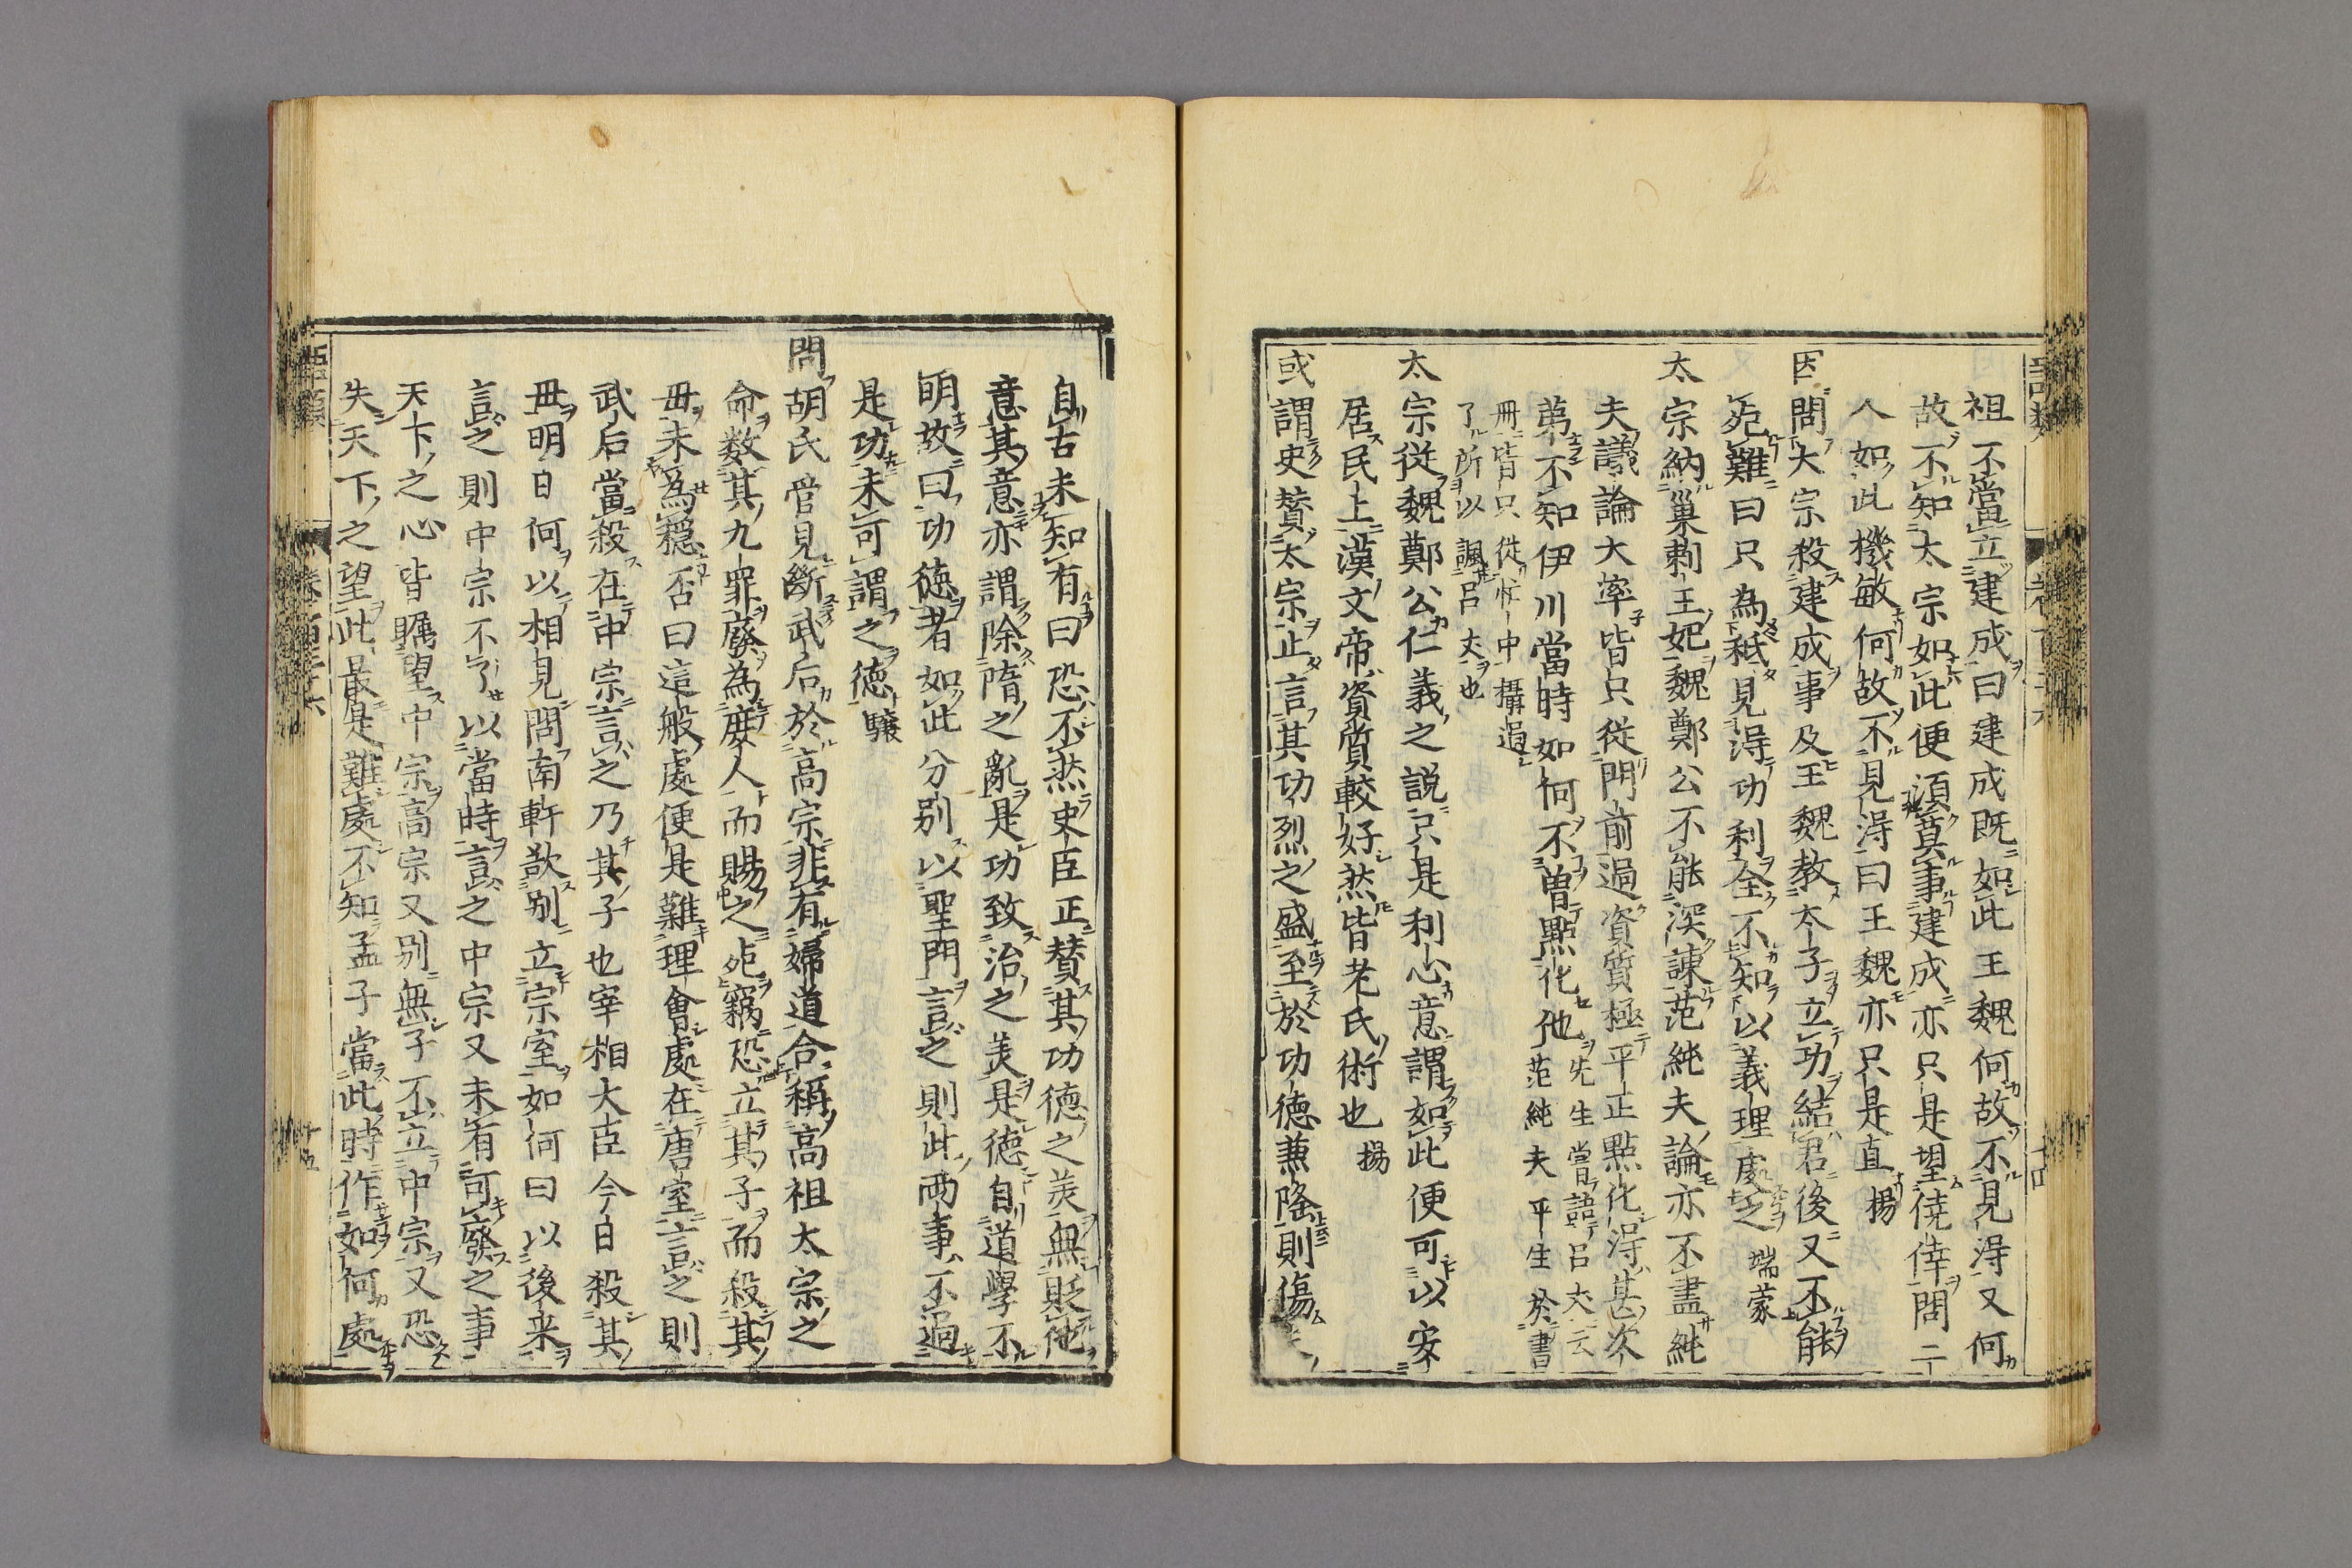 祖不當立建成曰建成既如此王魏何故不見得又何
故不知太宗如此便須莫事建成亦只是望僥倖問二
人如此機敏何故不見得曰王魏亦只是直 揚
因問太宗殺建成事及王魏教太子立功結君後又不能
死難曰只為秖見得功利全不知以義理處之 端蒙
太宗納巢剌王妃魏鄭公不能深諫范純夫論亦不盡純
夫議論大率皆只從門前過資質極平正點化得甚次
第不知伊川當時如何不曾點化他 先生嘗語呂丈云
范純夫平生於書
冊皆只從忙中攝過
了所以諷呂丈也
太宗從魏鄭公仁義之說只是利心意謂如此便可以安
居民上漢文帝資質較好然皆老氏術也 揚
或謂史贊太宗止言其功烈之盛至於功德兼隆則傷
自古未知有曰恐不然史臣正贊其功德之美無貶他
意其意亦謂除隋之亂是功致治之美是德自道學不
明故曰功德者如此分別以聖門言之則此兩事不過
是功未可謂之德 驤
問胡氏管見斷武后於高宗非有婦道合稱高祖太宗之
命數其九罪廢為庶人而賜之死竊恐立其子而殺其
母未為穩否曰這般處便是難理會處在唐室言之則
武后當殺在中宗言之乃其子也宰相大臣今日殺其
母明日何以相見問南軒欲別立宗室如何曰以後来
言之則中宗不了以當時言之中宗又未有可廢之事
天下之心皆矚望中宗高宗又別無子不立中宗又恐
失天下之望此最是難處不知孟子當此時作如何處